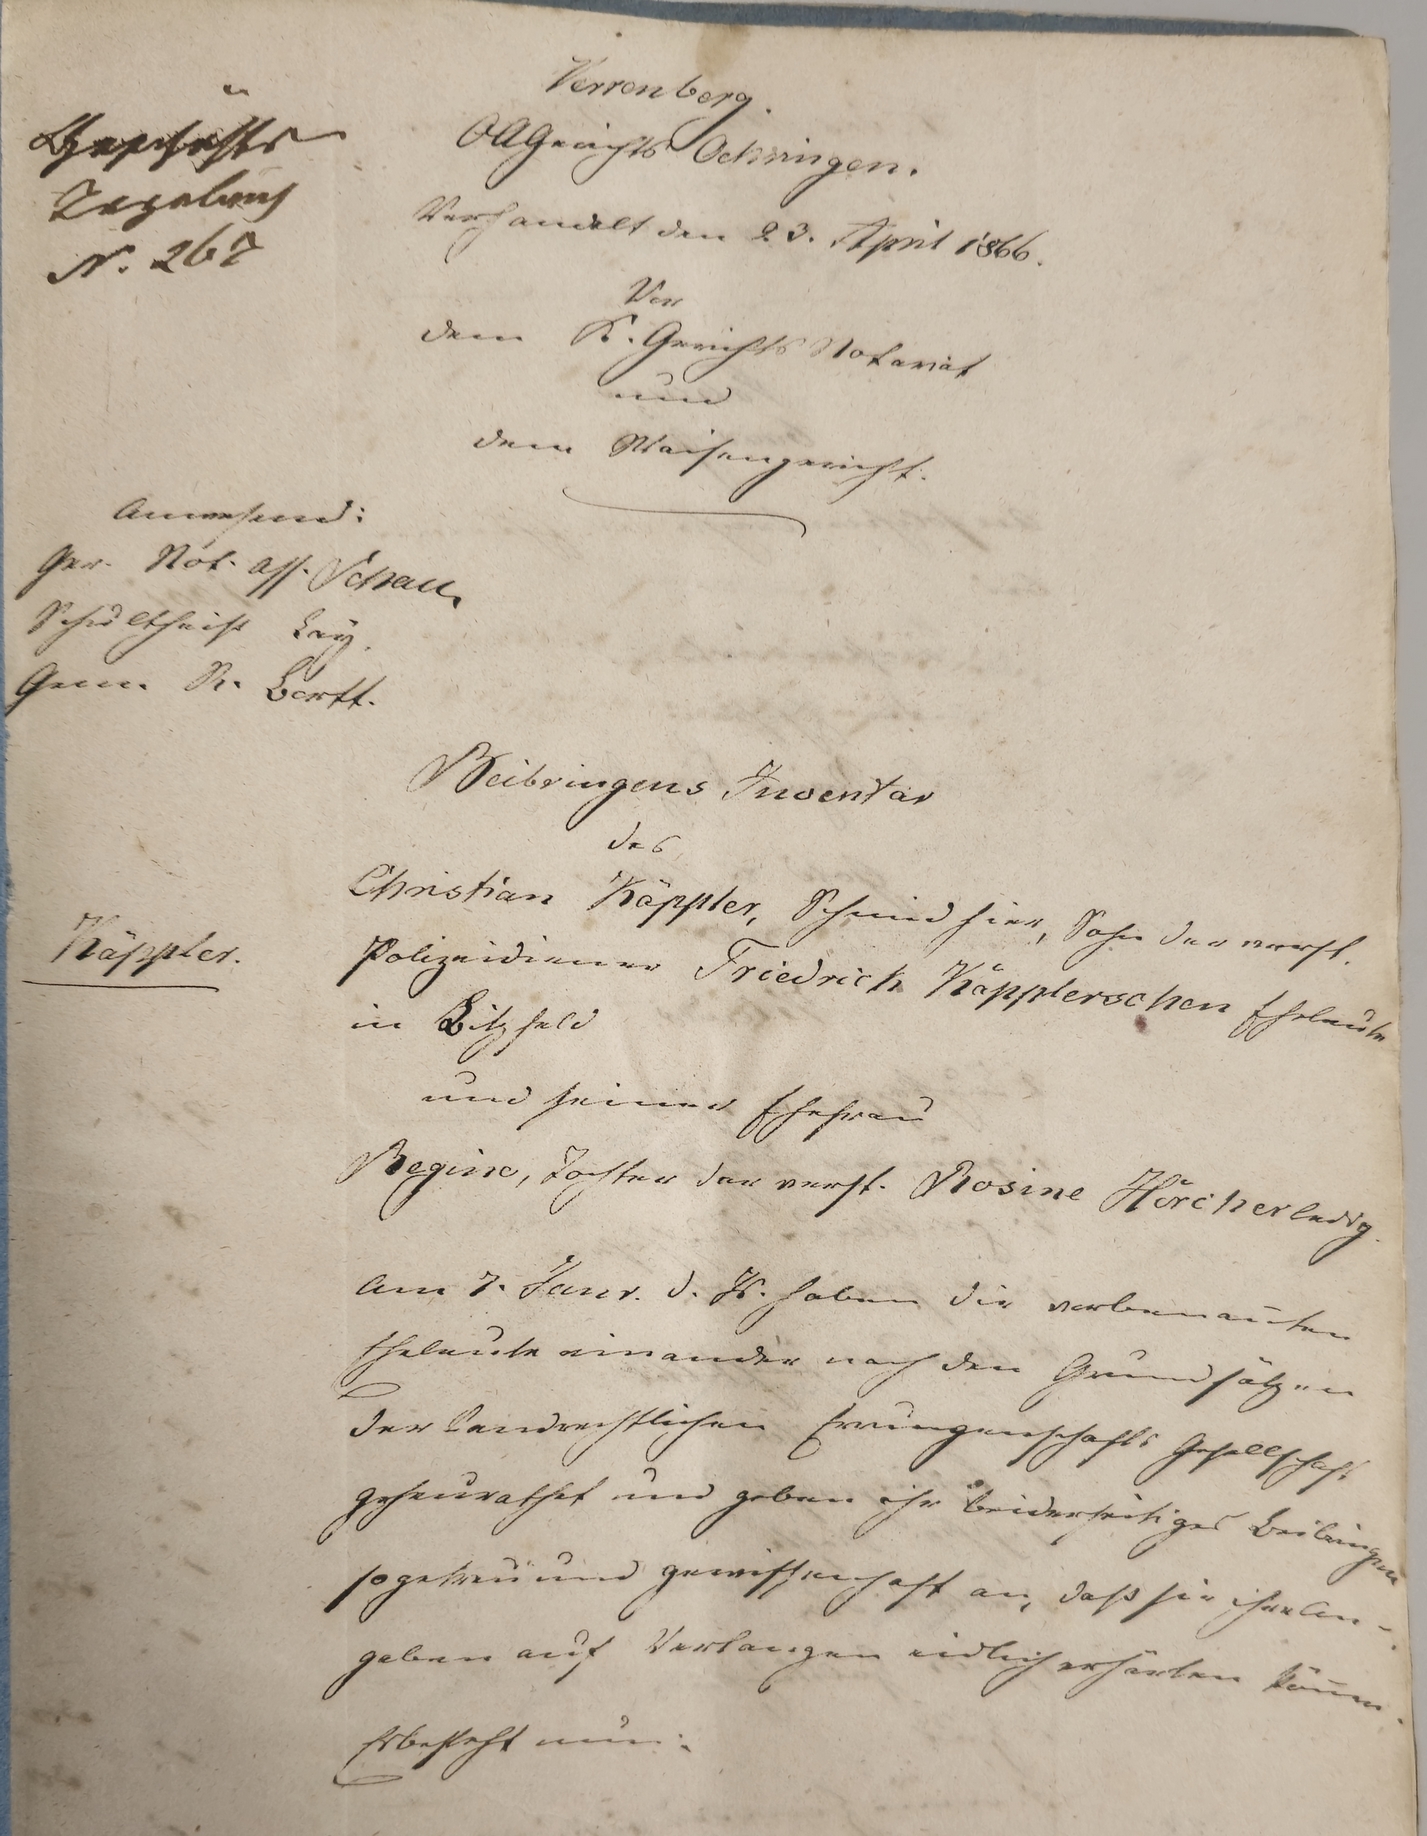 Verrenberg.
OAGerichts Oehringen.
Geschäfts
Tagebuch
N. 267
Verhandelt den 23. April 1866.
Vor
dem K. Gerichts Notariat
und
dem Waisengericht.
Anwesend:
Ger. Not. Ass. Schall,
Schultheiß Ley.
Gem. R. Bortt.
Beibringens Inventar
des
Christian Käppler, Schmid hier, Sohn der verst.
Käppler.
Polizeidiener Friedrich Käpplerschen Eheleute
in Bitzfeld
und seiner Ehefrau
Regine, Tochter der verst. Rosine Hörcher ledig.
Am 7. Janr. d. Js. haben die vorbenannten
Eheleute einander nach den Grundsätzen
der landrechtlichen Errungenschafts Gesellschaft
geheurathet und geben ihr beiderseitiges Beibringen
so getreu und gewissenhaft an, daß sie ihre An-
gaben auf Verlangen eidlich erhärten können.
Es besteht nun: